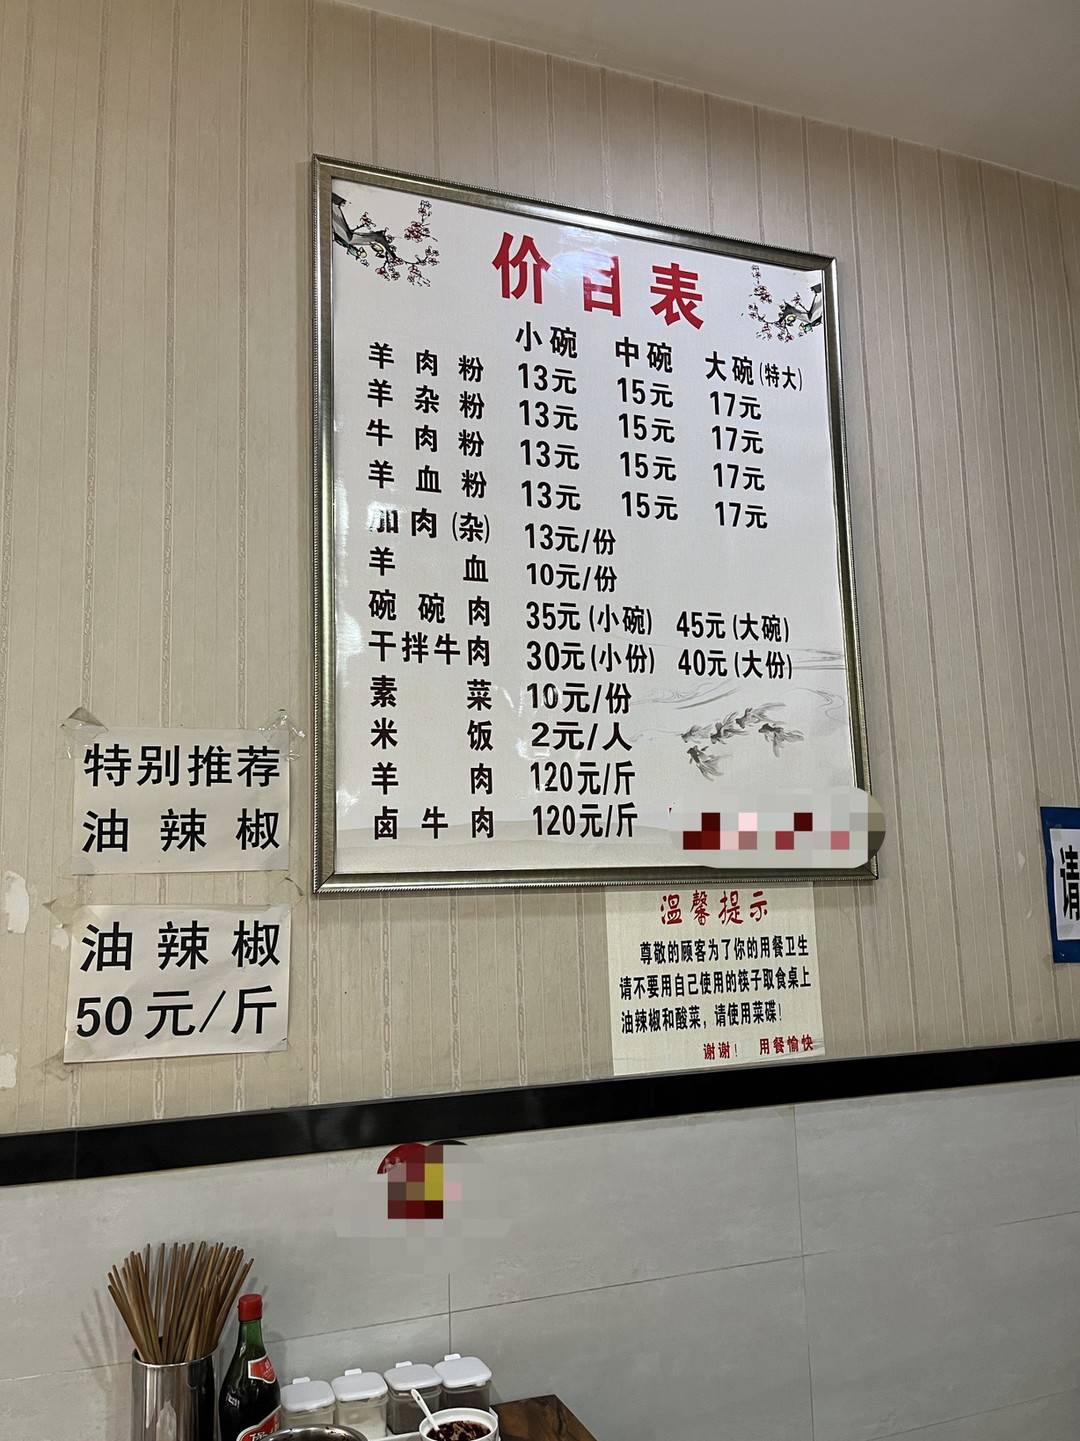 价目表
小碗 中碗 大碗(特大)
羊肉粉 13元 15元 17元
羊杂粉 13元 15元 17元
牛肉粉 13元 15元 17元
羊血粉 13元 15元 17元
加肉(杂) 13元/份
羊血 10元/份
碗碗肉 35元(小碗) 45元(大碗)
干拌牛肉 30元(小份) 40元(大份)
素菜 10元/份
米饭 2元/人
羊肉 120元/斤
卤牛肉 120元/斤
特别推荐
油辣椒
油辣椒
50元/斤
温馨提示
尊敬的顾客为了你的用餐卫生
请不要用自己使用的筷子取食桌上
油辣椒和酸菜，请使用菜碟！
谢谢！ 用餐愉快
请